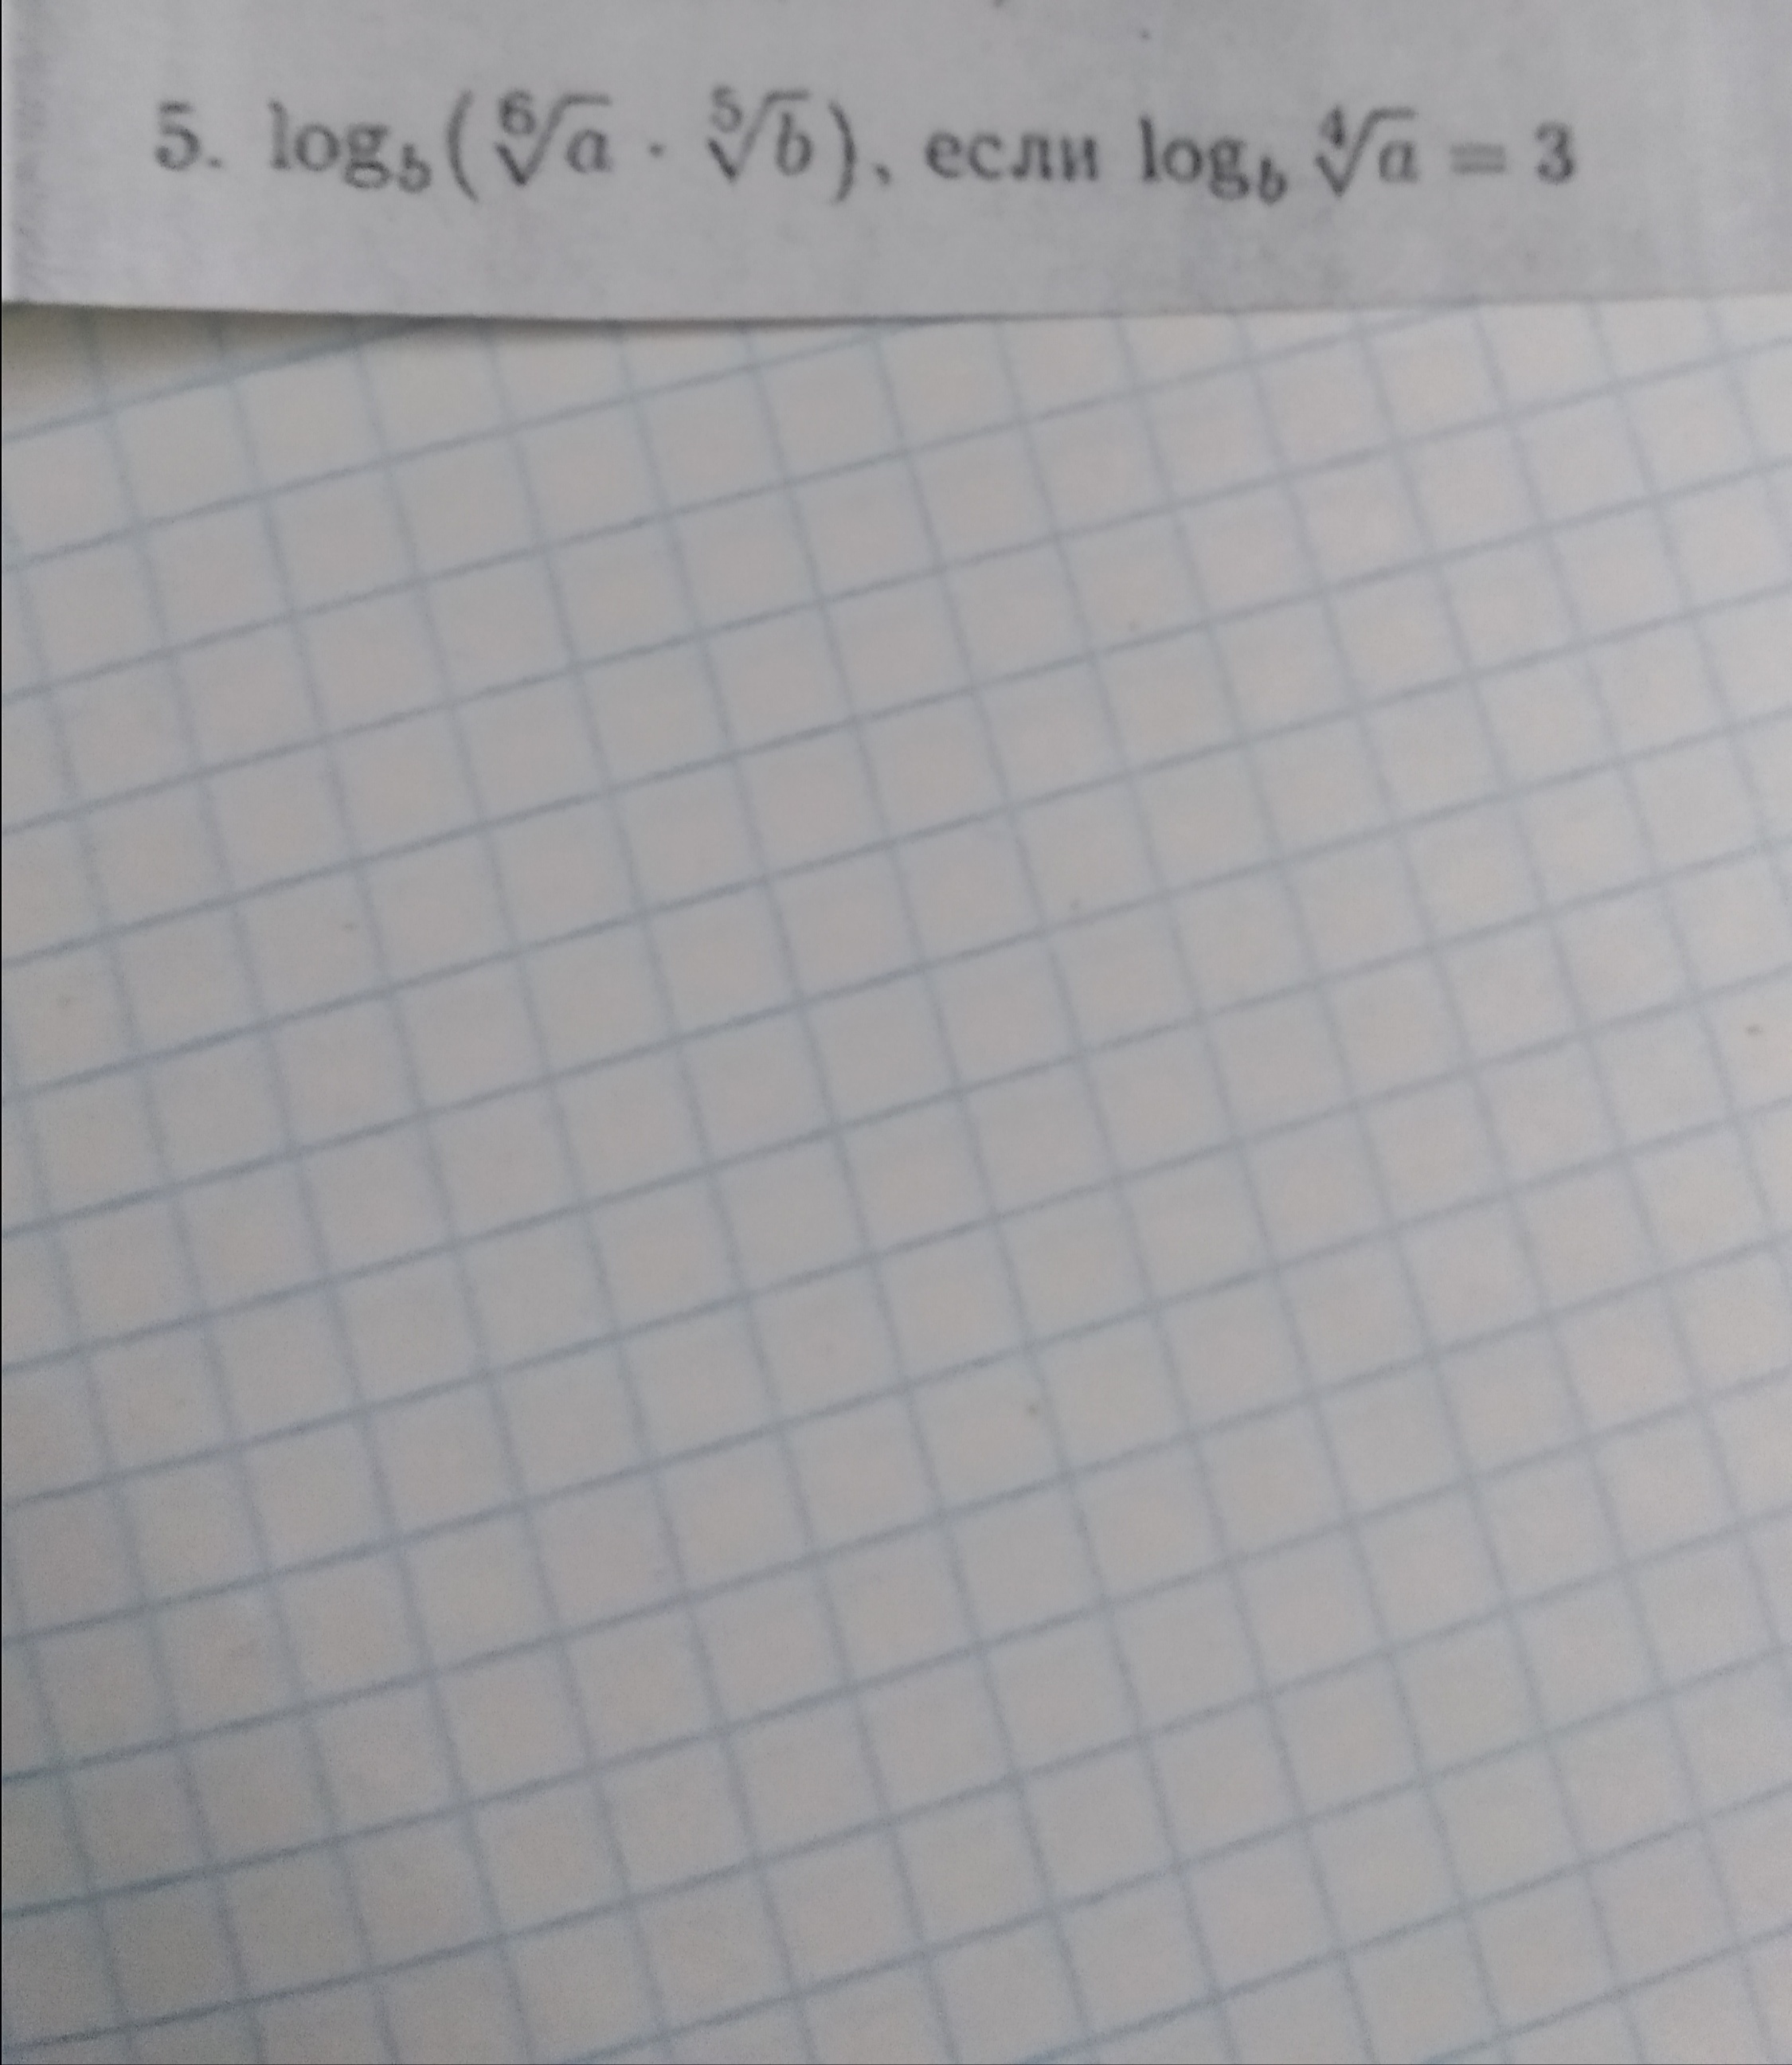 5. log_b(⁶√a · ⁵√b), если log_b ⁴√a = 3